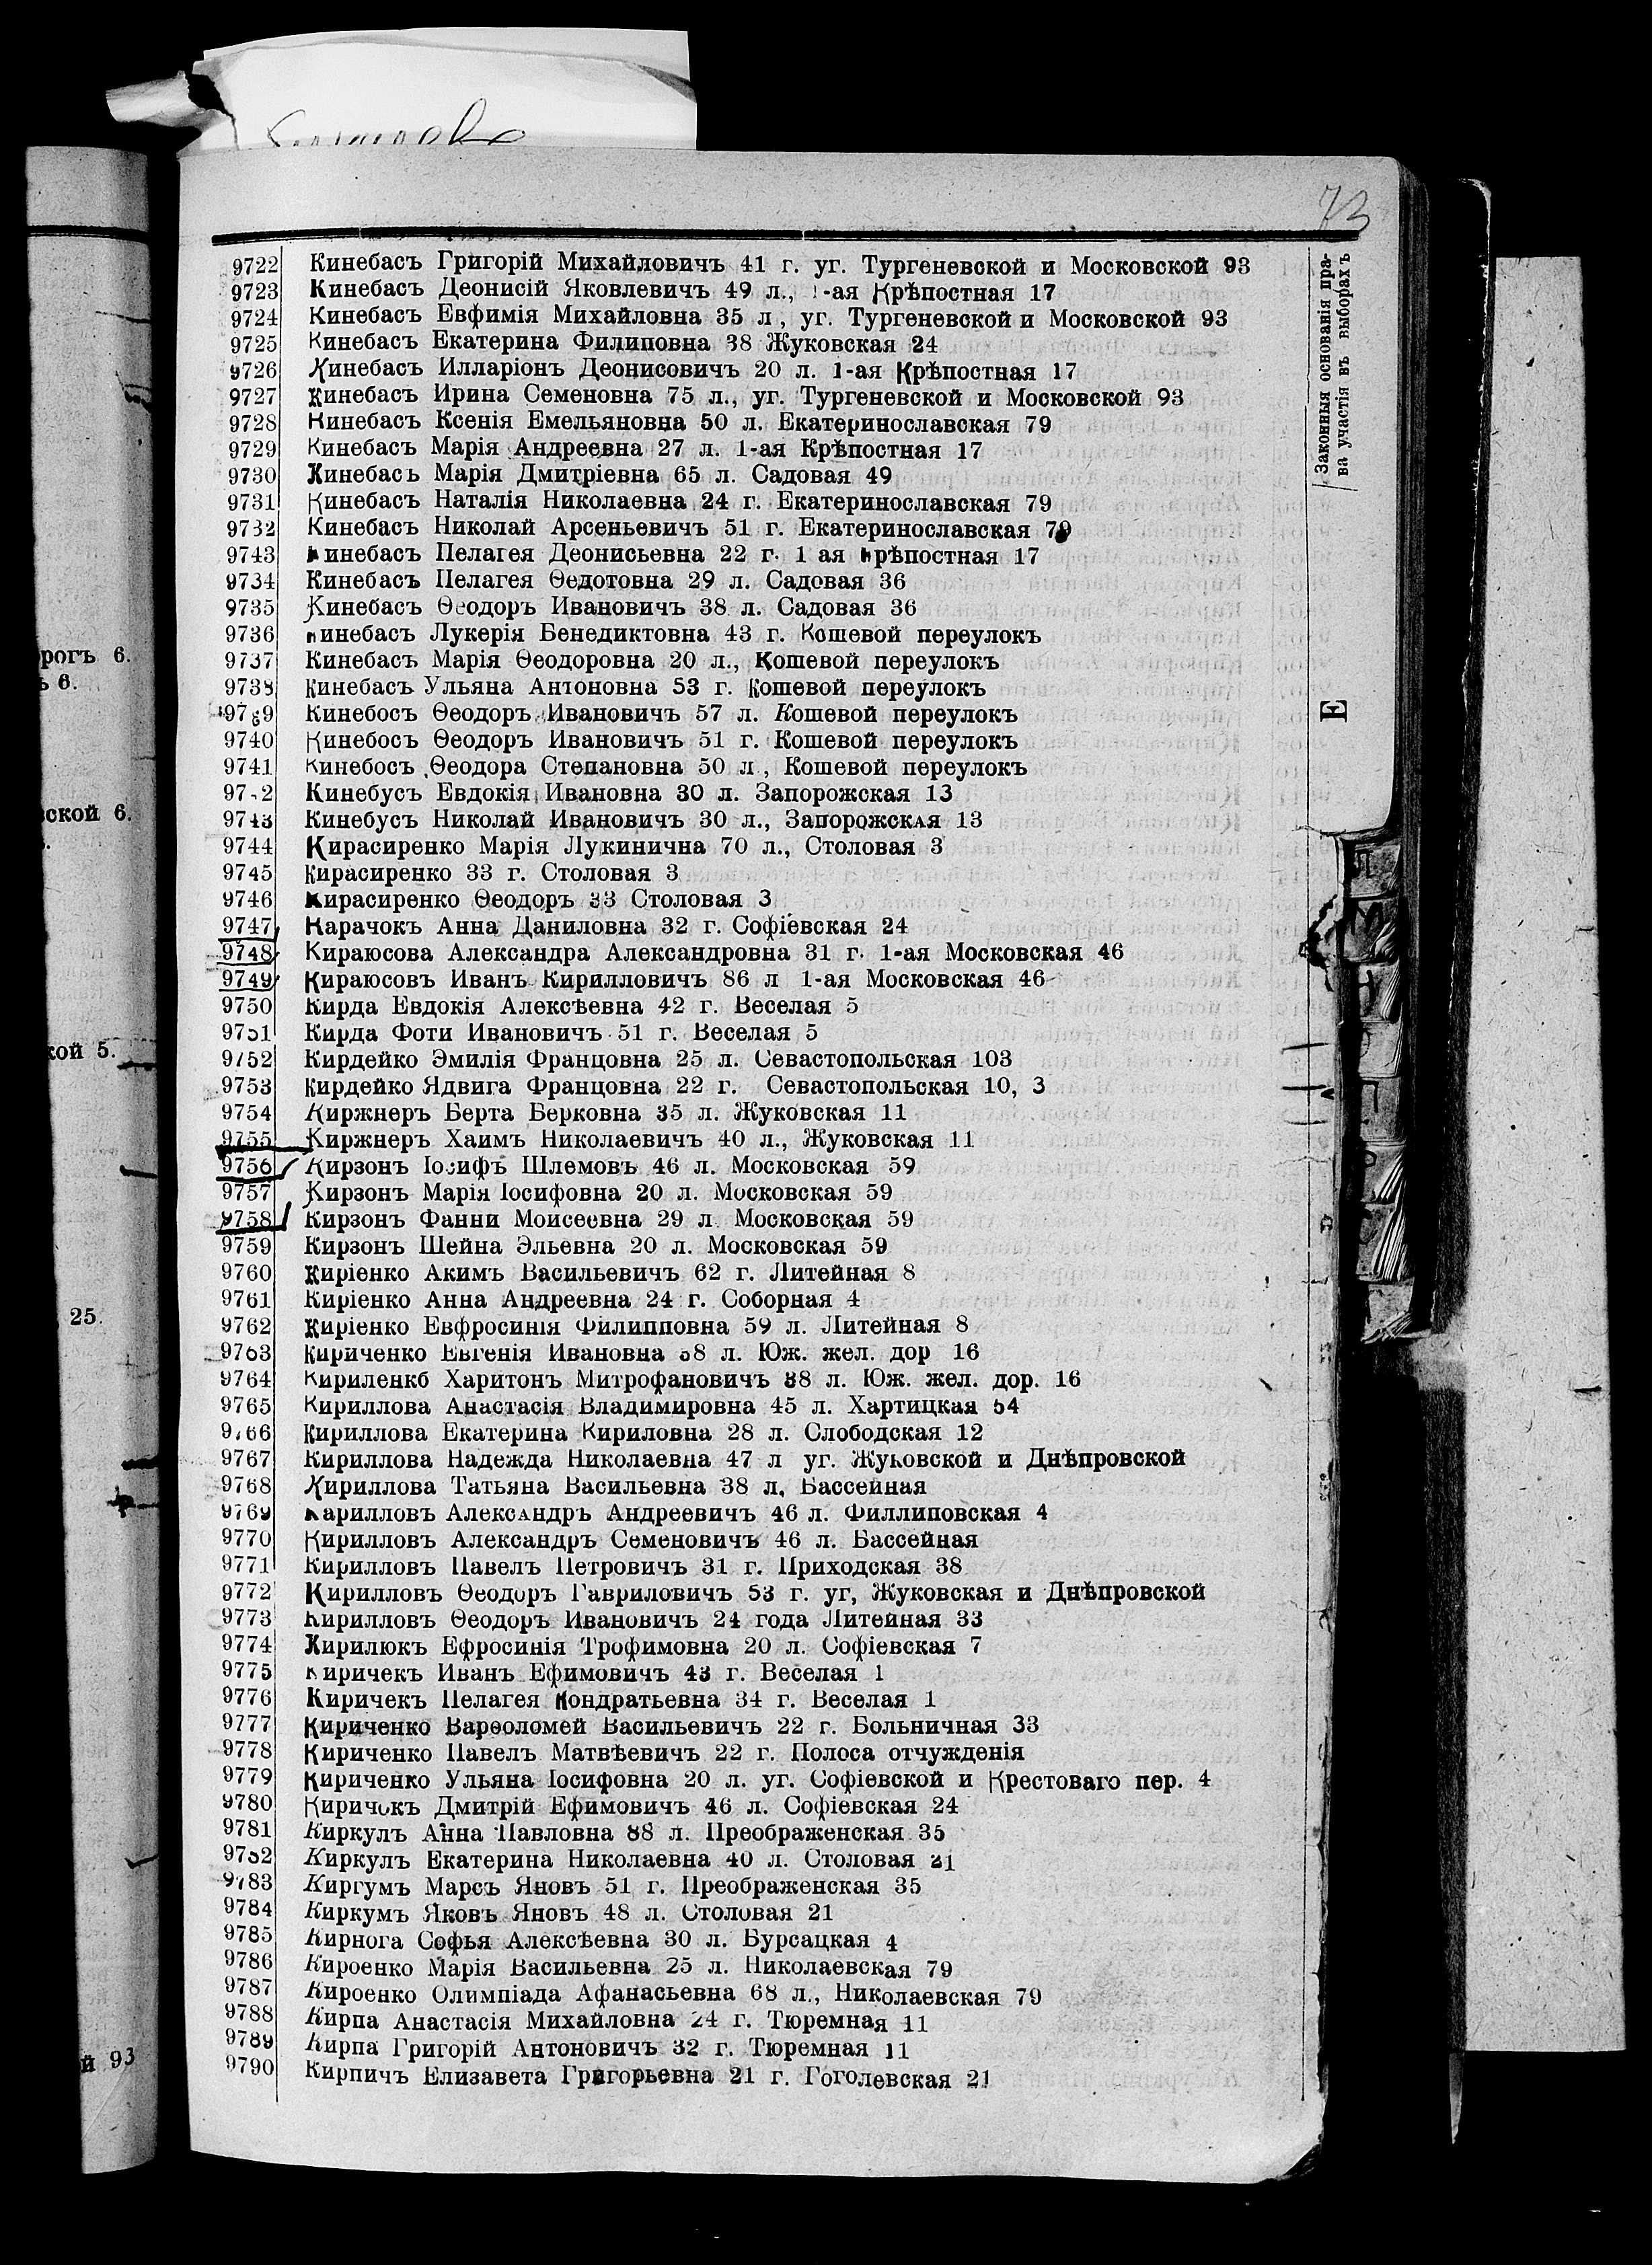 73
Законныя основанія пра-
ва участія въ выборахъ
9722 Кинебасъ Григорій Михайловичъ 41 г. уг. Тургеневской и Московской 93
9723 Кинебасъ Деонисій Яковлевичъ 49 л., 1-ая Крѣпостная 17
9724 Кинебасъ Евфимія Михайловна 35 л, уг. Тургеневской и Московской 93
9725 Кинебасъ Екатерина Филиповна 38 Жуковская 24
9726 Кинебасъ Илларіонъ Деонисовичъ 20 л. 1-ая Крѣпостная 17
9727 Кинебасъ Ирина Семеновна 75 л., уг. Тургеневской и Московской 93
9728 Кинебасъ Ксенія Емельяновна 50 л. Екатеринославская 79
9729 Кинебасъ Марія Андреевна 27 л. 1-ая Крѣпостная 17
9730 Кинебасъ Марія Дмитріевна 65 л. Садовая 49
9731 Кинебасъ Наталія Николаевна 24 г. Екатеринославская 79
9732 Кинебасъ Николай Арсеньевичъ 51 г. Екатеринославская 79
9743 Кинебасъ Пелагея Деонисьевна 22 г. 1 ая Крѣпостная 17
9734 Кинебасъ Пелагея Ѳедотовна 29 л. Садовая 36
9735 Кинебасъ Ѳеодоръ Ивановичъ 38 л. Садовая 36
9736 Кинебасъ Лукерія Бенедиктовна 43 г. Кошевой переулокъ
9737 Кинебасъ Марія Ѳеодоровна 20 л., Кошевой переулокъ
9738 Кинебасъ Ульяна Антоновна 53 г. Кошевой переулокъ
9739 Кинебосъ Ѳеодоръ Ивановичъ 57 л. Кошевой переулокъ
9740 Кинебосъ Ѳеодоръ Ивановичъ 51 г. Кошевой переулокъ
9741 Кинебосъ Ѳеодора Степановна 50 л, Кошевой переулокъ
Е
97-2 Кинебусъ Евдокія Ивановна 30 л. Запорожская 13
9743 Кинебусъ Николай Ивановичъ 30 л., Запорожская 13
9744 Кирасиренко Марія Лукинична 70 л., Столовая 3
9745 Кирасиренко 33 г. Столовая 3
9746 Кирасиренко Ѳеодоръ 33 Столовая 3
9747 Карачокъ Анна Даниловна 32 г. Софіевская 24
9748 Кираюсова Александра Александровна 31 г. 1-ая Московская 46
9749 Кираюсовъ Иванъ Кирилловичъ 86 л 1-ая Московская 46
9750 Кирда Евдокія Алексѣевна 42 г. Веселая 5
9751 Кирда Фоти Ивановичъ 51 г. Веселая 5
9752 Кирдейко Эмилія Францовна 25 л. Севастопольская 103
9753 Кирдейко Ядвига Францовна 22 г. Севастопольская 10, 3
9754 Киржнеръ Берта Берковна 35 л. Жуковская 11
9755 Киржнеръ Хаимъ Николаевичъ 40 л., Жуковская 11
9756 Кирзонъ Іосифъ Шлемовъ 46 л. Московская 59
9757 Кирзонъ Марія Іосифовна 20 л. Московская 59
9758 Кирзонъ Фанни Моисеевна 29 л. Московская 59
9759 Кирзонъ Шейна Эльевна 20 л. Московская 59
9760 Киріенко Акимъ Васильевичъ 62 г. Литейная 8
9761 Киріенко Анна Андреевна 24 г. Соборная 4
9762 Киріенко Евфросинія Филипповна 59 л. Литейная 8
9763 Кириченко Евгенія Ивановна 38 л. Юж. жел. дор 16
9764 Кириленкб Харитонъ Митрофановичъ 38 л. Юж. жел. дор. 16
9765 Кириллова Анастасія Владимировна 45 л. Хартицкая 54
9766 Кириллова Екатерина Кириловна 28 л. Слободская 12
9767 Кириллова Надежда Николаевна 47 л уг. Жуковской и Днѣпровской
9768 Кириллова Татьяна Васильевна 38 л. Бассейная
9769 Карилловъ Александръ Андреевичъ 46 л. Филлиповская 4
9770 Кирилловъ Александръ Семеновичъ 46 л. Бассейная
9771 Кирилловъ Павелъ Петровичъ 31 г. Приходская 38
9772 Кирилловъ Ѳеодоръ Гавриловичъ 53 г. уг, Жуковская и Днѣпровской
9773 Кирилловъ Ѳеодоръ Ивановичъ 24 года Литейная 33
9774 Кирилюкъ Ефросинія Трофимовна 20 л. Софіевская 7
9775 Киричекъ Иванъ Ефимовичъ 43 г. Веселая 1
9776 Киричекъ Пелагея Кондратьевна 34 г. Веселая 1
9777 Кириченко Варѳоломей Васильевичъ 22 г. Больничная 33
9778 Кириченко Павелъ Матвѣевичъ 22 г. Полоса отчужденія
9779 Кириченко Ульяна Іосифовна 20 л. уг. Софіевской и Крестоваго пер. 4
9780 Киричокъ Дмитрій Ефимовичъ 46 л. Софіевская 24
9781 Киркулъ Анна Павловна 88 л. Преображенская 35
9782 Киркулъ Екатерина Николаевна 40 л. Столовая 21
9783 Киргумъ Марсъ Яновъ 51 г. Преображенская 35
9784 Киркумъ Яковъ Яновъ 48 л. Столовая 21
9785 Кирнога Софья Алексѣевна 30 л. Бурсацкая 4
9786 Кироенко Марія Васильевна 25 л. Николаевская 79
9787 Кироенко Олимпіада Афанасьевна 68 л., Николаевская 79
9788 Кирпа Анастасія Михайловна 24 г. Тюремная 11
9789 Кирпа Григорій Антоновичъ 32 г. Тюремная 11
9790 Кирпичъ Елизавета Григорьевна 21 г. Гоголевская 21
рогъ 6.
ь 6.
ской 6.
кой 5.
25.
й 93